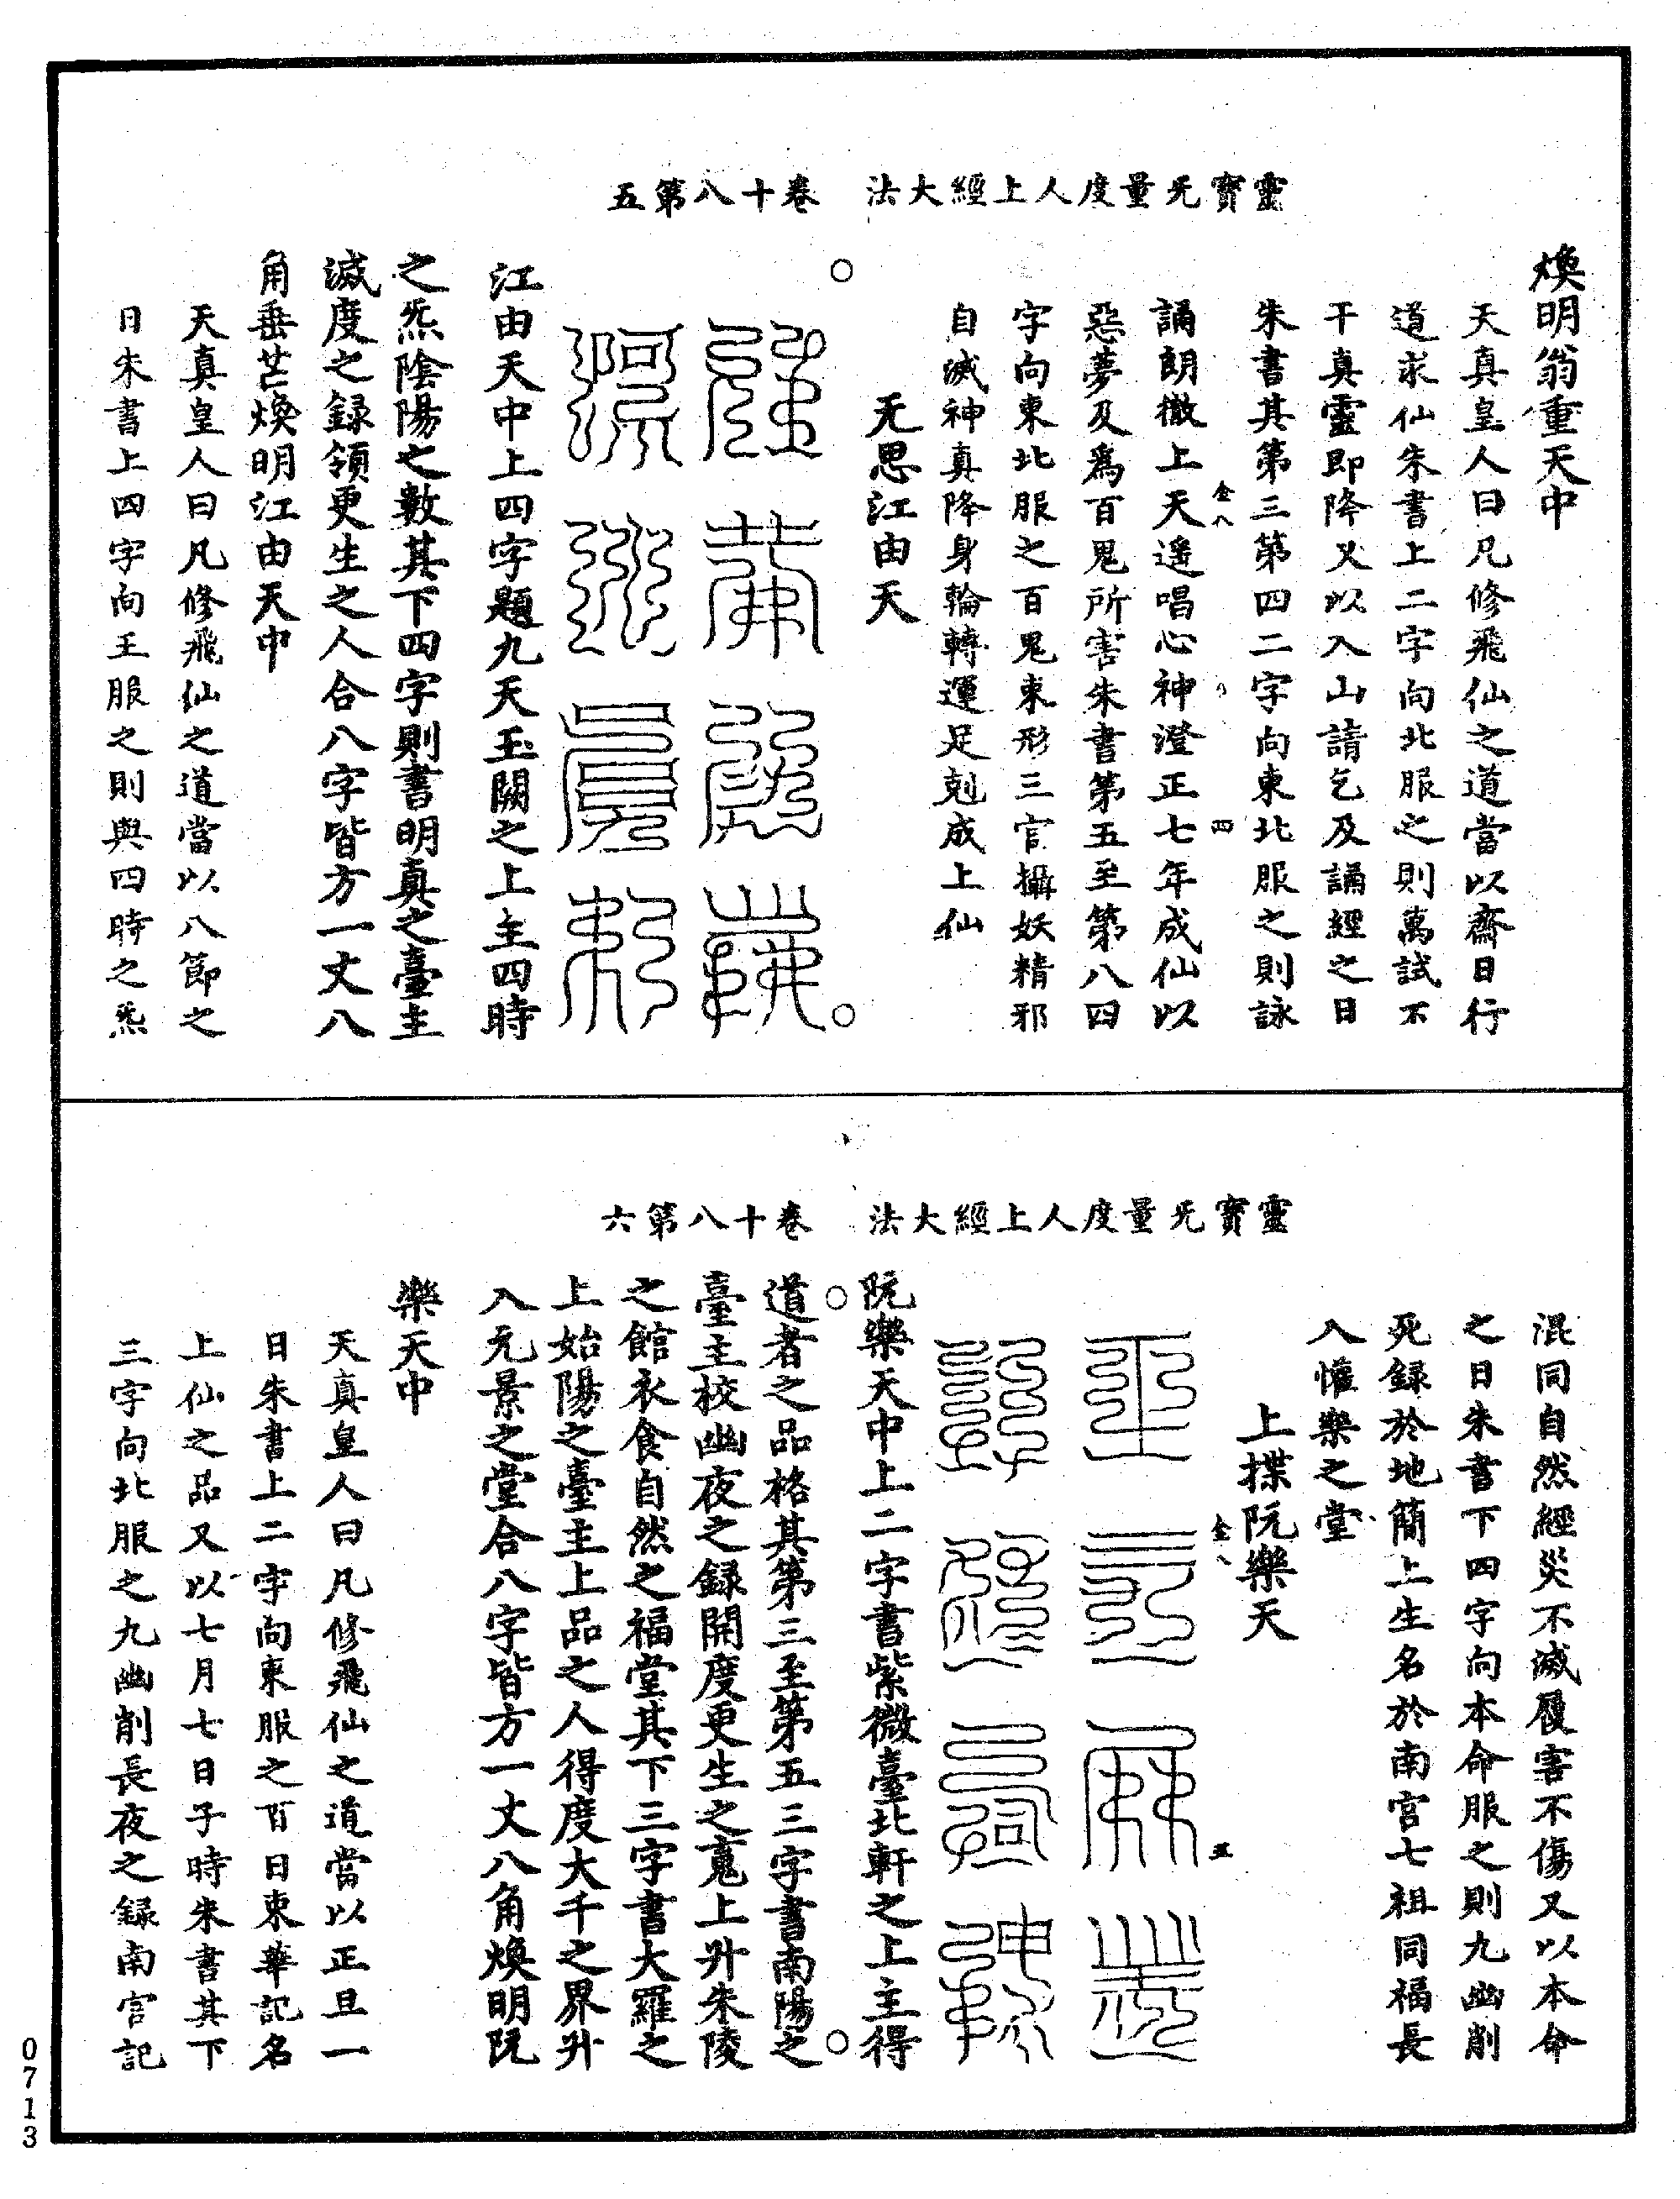 靈寶旡量度人上經大法　卷十八第五
煥明翁重天中
天真皇人曰凡修飛仙之道當以齋日行
道求仙朱書上二字向北服之則萬試不
干真靈即降又以入山請乞及誦經之日
朱書其第三第四二字向東北服之則詠
金八　四
誦朗徹上天遙唱心神澄正七年成仙以
惡夢及爲百鬼所害朱書第五至第八四
字向東北服之百鬼束形三官攝妖精邪
自滅神真降身輪轉運足剋成上仙
无思江由天
江由天中上四字題九天玉闕之上主四時
之炁陰陽之數其下四字則書明真之臺主
滅度之録領更生之人合八字皆方一丈八
角垂芒煥明江由天中
天真皇人曰凡修飛仙之道當以八節之
日朱書上四字向王服之則與四時之炁
靈寶旡量度人上經大法　卷十八第六
混同自然經災不滅履害不傷又以本命
之日朱書下四字向本命服之則九幽削
死録於地簡上生名於南宫七祖同福長
入懽樂之堂
金八　五
上揲阮樂天
阮樂天中上二字書紫微臺北軒之上主得
道者之品格其第三至第五三字書南陽之
臺主校幽夜之録開度更生之䰟上升朱陵
之館衣食自然之福堂其下三字書大羅之
上始陽之臺主上品之人得度大千之界升
入元景之堂合八字皆方一丈八角煥明阮
樂天中
天真皇人曰凡修飛仙之道當以正旦一
日朱書上二字向東服之百日東華記名
上仙之品又以七月七日子時朱書其下
三字向北服之九幽削長夜之録南宫記
0713